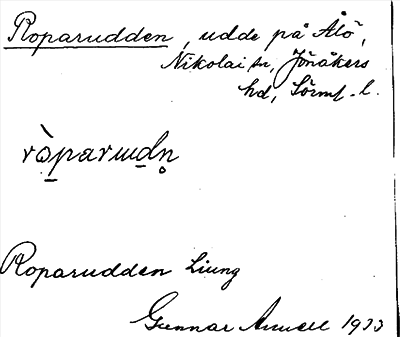 Roparudden, udde på Ålö,
Nikolai sn, Jönåkers
hd, Sörml. l.
ròparɯdn̥
Roparudden Liung
Gunnar 1933